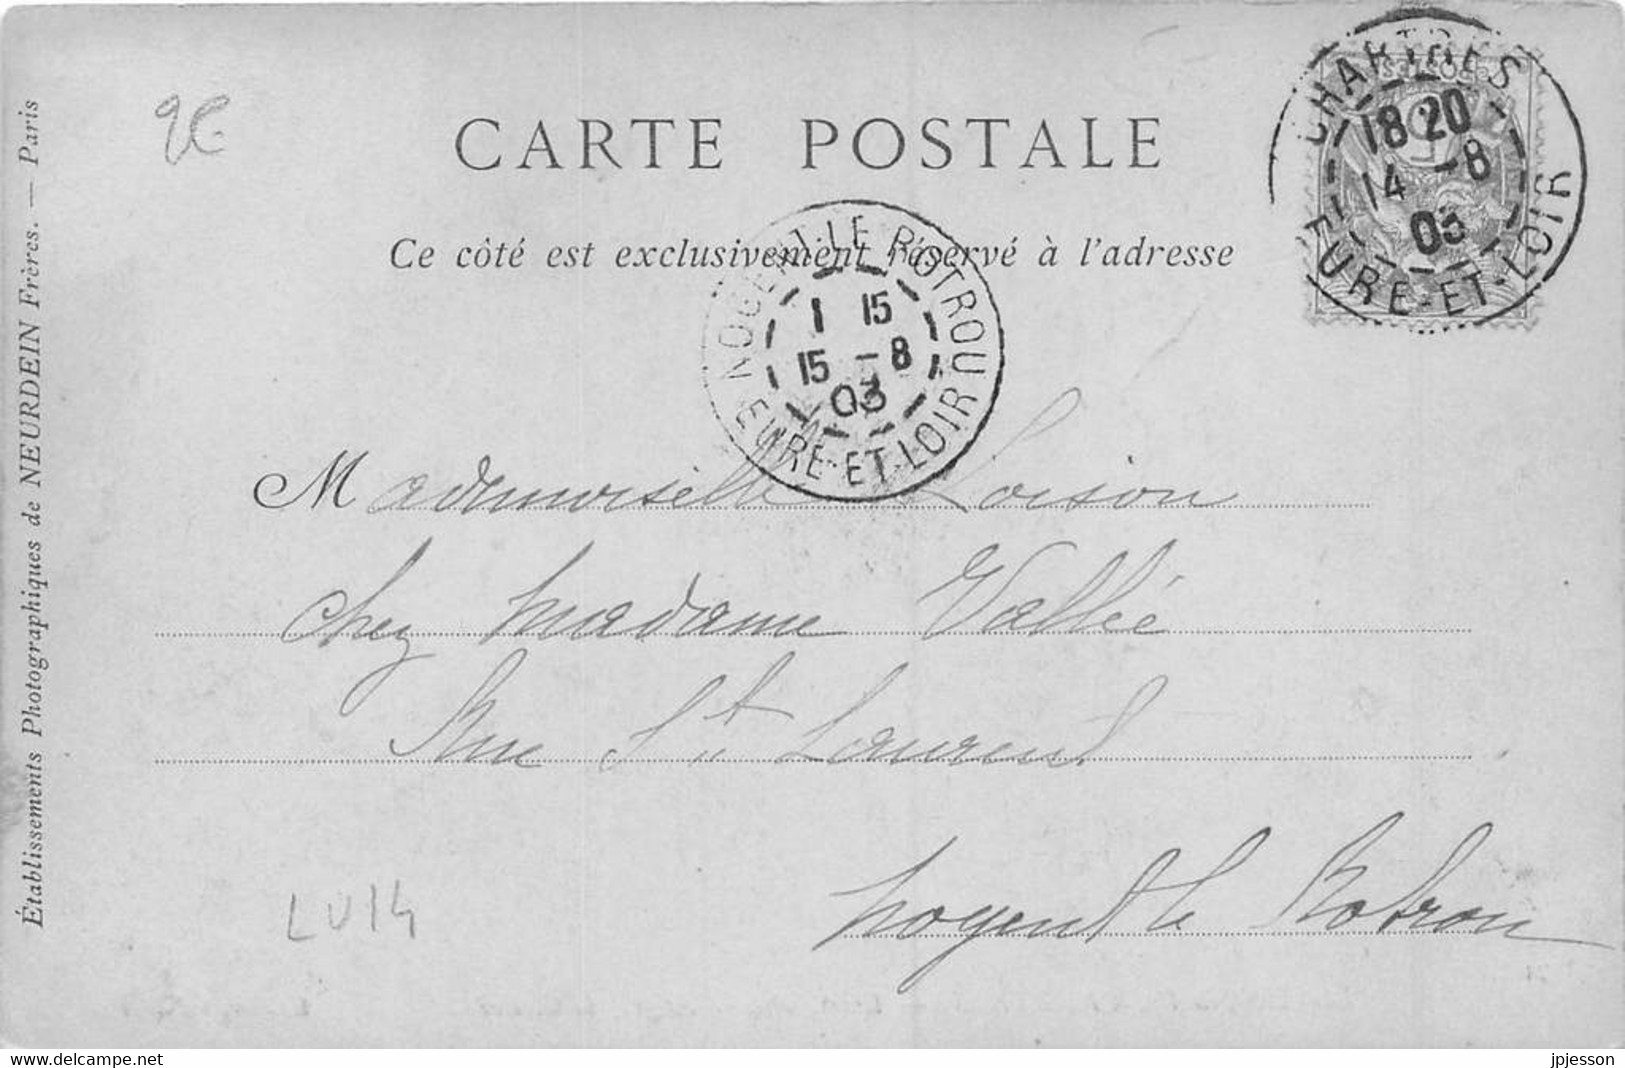 2€
CARTE POSTALE
Ce côté est exclusivement réservé à l'adresse
CHARTRES
18 20
14 -8
03
EURE-ET-LOIR
NOGENT-LE-ROTROU
1 15
15 -8
03
EURE-ET-LOIR
Mademoiselle Loison
chez Madame Vallée
Rue St Laurent
Nogent le Rotrou
LU14
Établissements Photographiques de NEURDEIN Frères. — Paris
www.delcampe.net
jpjesson